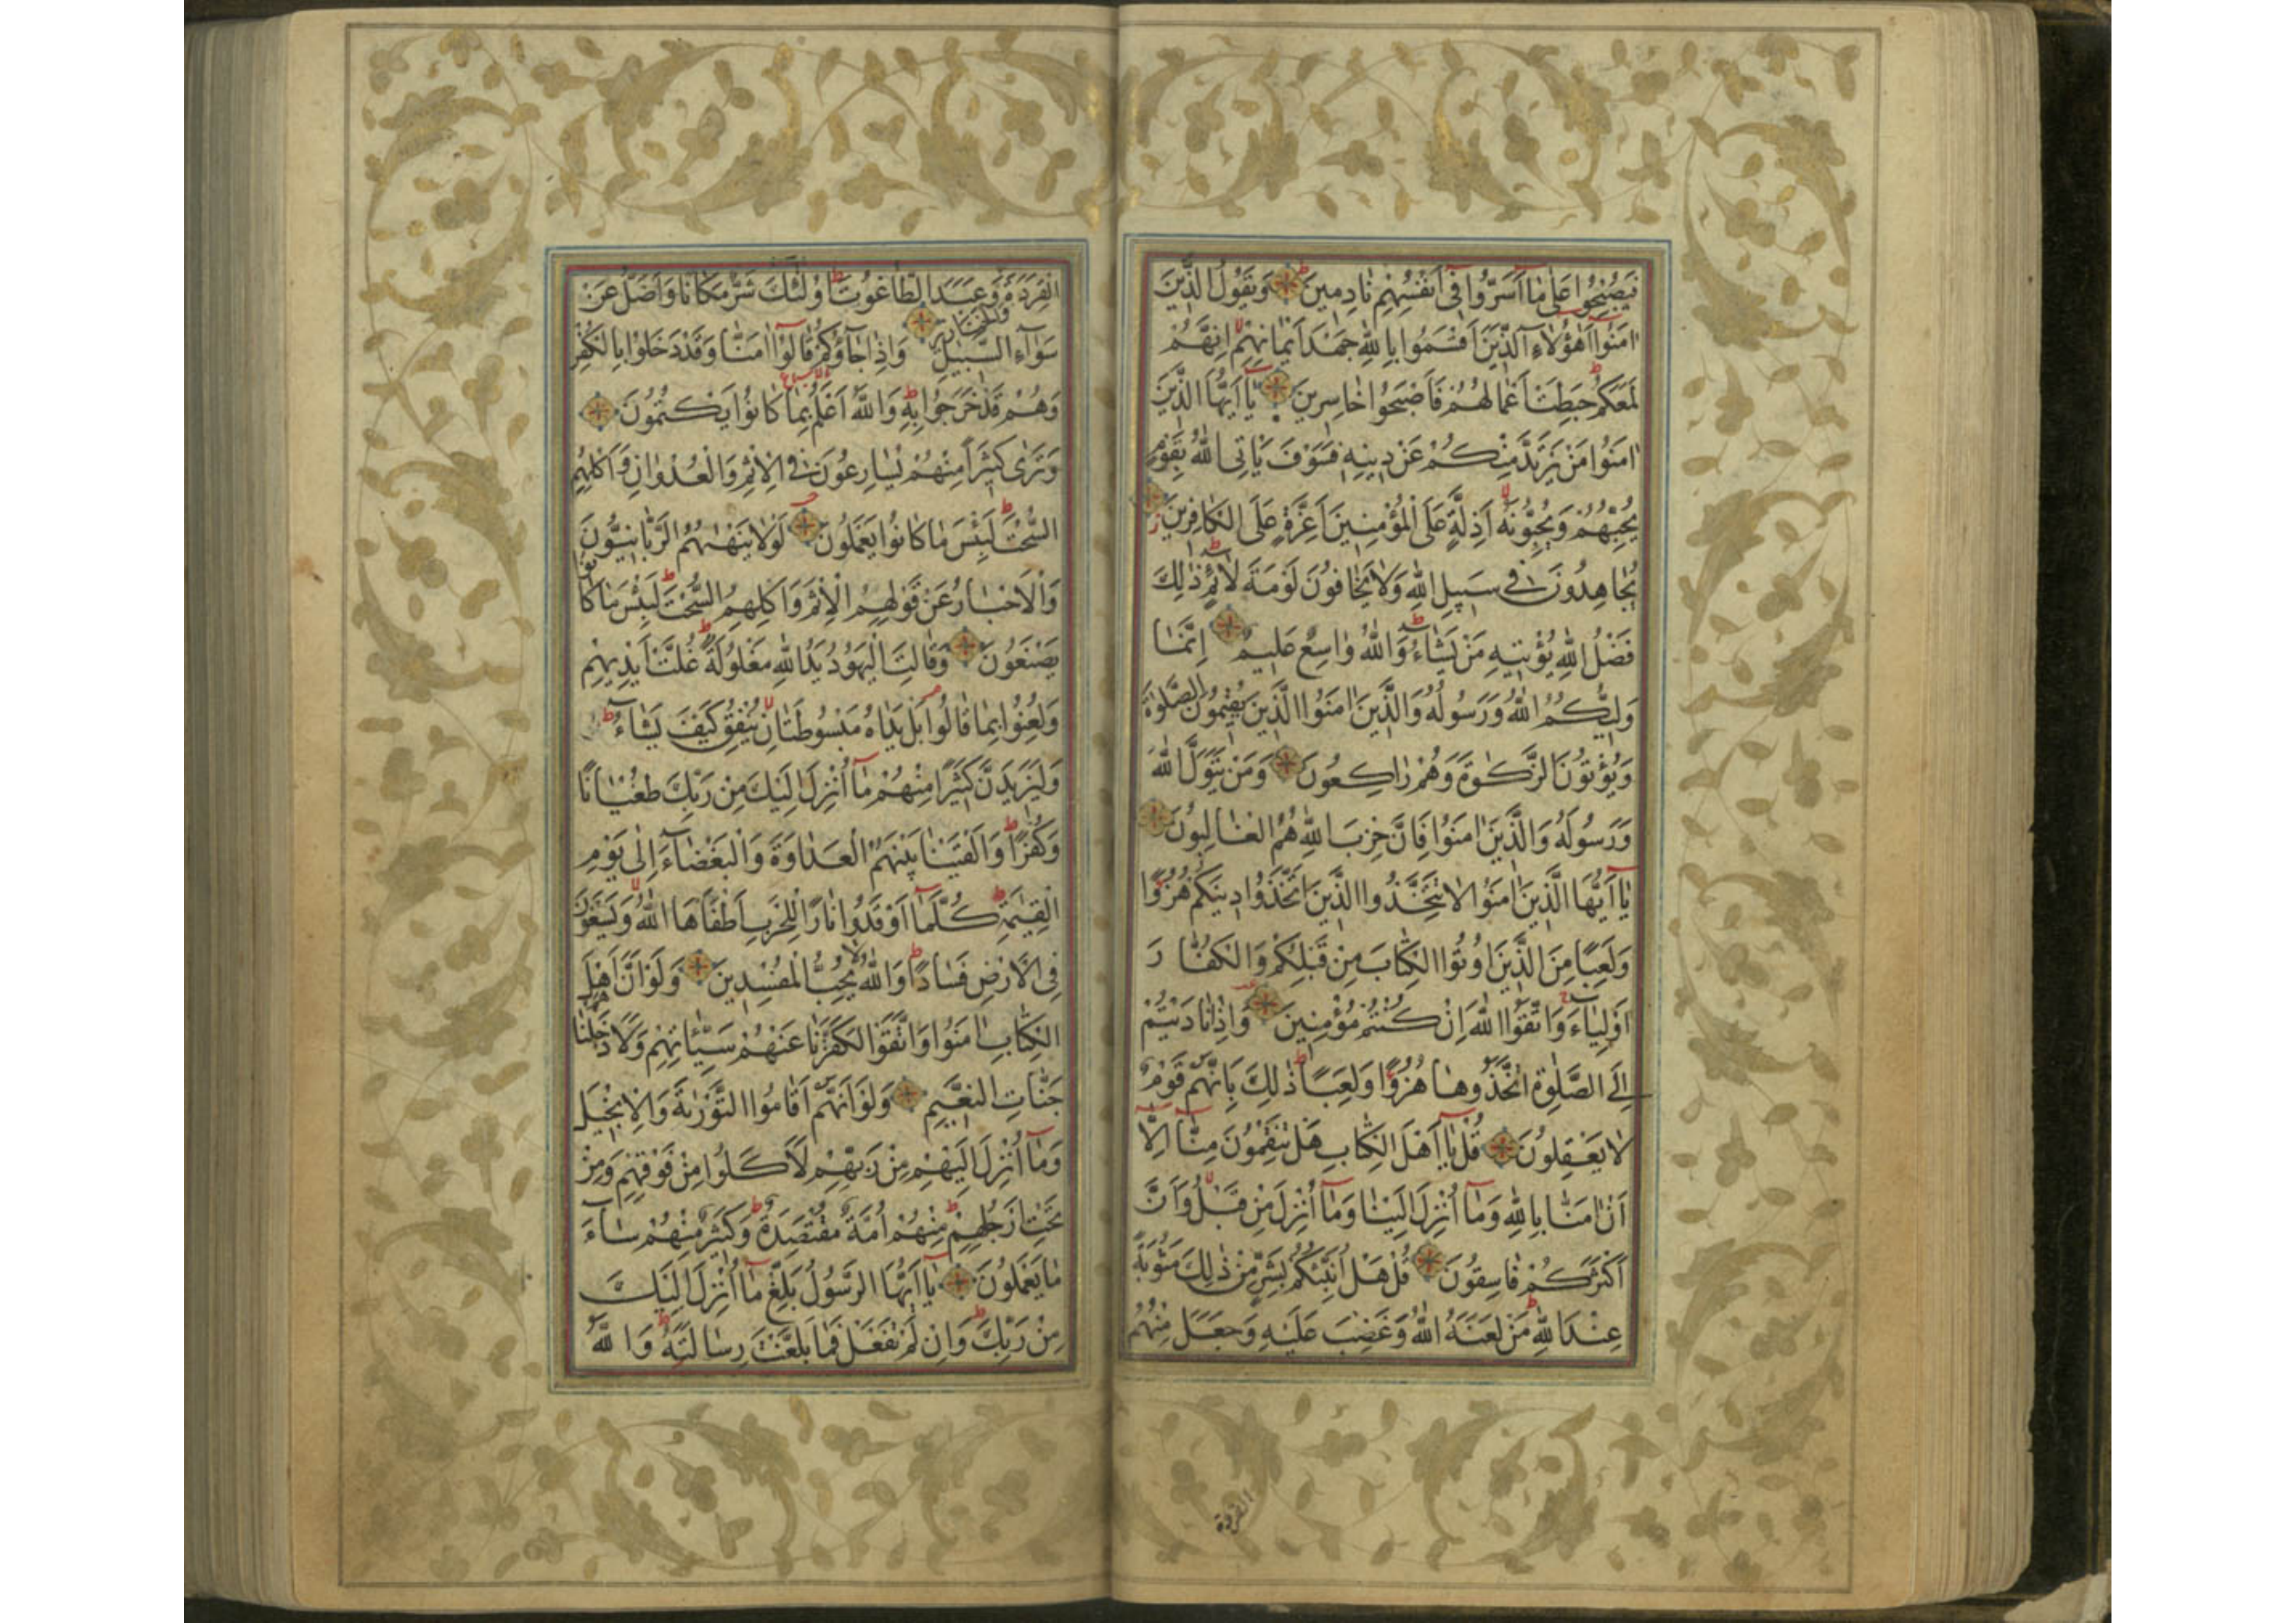 فَيُصْبِحُوا عَلٰى مَا اَسَرُّوا فٖى اَنْفُسِهِمْ نَادِمٖينَ وَيَقُولُ الَّذٖينَ
اٰمَنُوا اَهٰؤُلَاءِ الَّذٖينَ اَقْسَمُوا بِاللّٰهِ جَهْدَ اَيْمَانِهِمْ اِنَّهُمْ
لَمَعَكُمْ حَبِطَتْ اَعْمَالُهُمْ فَاَصْبَحُوا خَاسِرٖينَ يَا اَيُّهَا الَّذٖينَ
اٰمَنُوا مَنْ يَرْتَدَّ مِنْكُمْ عَنْ دٖينِهٖ فَسَوْفَ يَاْتِى اللّٰهُ بِقَوْمٍ
يُحِبُّهُمْ وَيُحِبُّونَهُ اَذِلَّةٍ عَلَى الْمُؤْمِنٖينَ اَعِزَّةٍ عَلَى الْكَافِرٖينَ
يُجَاهِدُونَ فٖى سَبٖيلِ اللّٰهِ وَلَا يَخَافُونَ لَوْمَةَ لَائِمٍ ذٰلِكَ
فَضْلُ اللّٰهِ يُؤْتٖيهِ مَنْ يَشَاءُ وَاللّٰهُ وَاسِعٌ عَلٖيمٌ اِنَّمَا
وَلِيُّكُمُ اللّٰهُ وَرَسُولُهُ وَالَّذٖينَ اٰمَنُوا الَّذٖينَ يُقٖيمُونَ الصَّلٰوةَ
وَيُؤْتُونَ الزَّكٰوةَ وَهُمْ رَاكِعُونَ وَمَنْ يَتَوَلَّ اللّٰهَ
وَرَسُولَهُ وَالَّذٖينَ اٰمَنُوا فَاِنَّ حِزْبَ اللّٰهِ هُمُ الْغَالِبُونَ
يَا اَيُّهَا الَّذٖينَ اٰمَنُوا لَا تَتَّخِذُوا الَّذٖينَ اتَّخَذُوا دٖينَكُمْ هُزُوًا
وَلَعِبًا مِنَ الَّذٖينَ اُوتُوا الْكِتَابَ مِنْ قَبْلِكُمْ وَالْكُفَّارَ
اَوْلِيَاءَ وَاتَّقُوا اللّٰهَ اِنْ كُنْتُمْ مُؤْمِنٖينَ وَاِذَا نَادَيْتُمْ
اِلَى الصَّلٰوةِ اتَّخَذُوهَا هُزُوًا وَلَعِبًا ذٰلِكَ بِاَنَّهُمْ قَوْمٌ
لَا يَعْقِلُونَ قُلْ يَا اَهْلَ الْكِتَابِ هَلْ تَنْقِمُونَ مِنَّا اِلَّا
اَنْ اٰمَنَّا بِاللّٰهِ وَمَا اُنْزِلَ اِلَيْنَا وَمَا اُنْزِلَ مِنْ قَبْلُ وَاَنَّ
اَكْثَرَكُمْ فَاسِقُونَ قُلْ هَلْ اُنَبِّئُكُمْ بِشَرٍّ مِنْ ذٰلِكَ مَثُوبَةً
عِنْدَ اللّٰهِ مَنْ لَعَنَهُ اللّٰهُ وَغَضِبَ عَلَيْهِ وَجَعَلَ مِنْهُمُ
القردة
الْقِرَدَةَ وَالْخَنَازٖيرَ وَعَبَدَ الطَّاغُوتَ اُولٰئِكَ شَرٌّ مَكَانًا وَاَضَلُّ عَنْ
سَوَاءِ السَّبٖيلِ وَاِذَا جَاؤُكُمْ قَالُوا اٰمَنَّا وَقَدْ دَخَلُوا بِالْكُفْرِ
وَهُمْ قَدْ خَرَجُوا بِهٖ وَاللّٰهُ اَعْلَمُ بِمَا كَانُوا يَكْتُمُونَ
وَتَرٰى كَثٖيرًا مِنْهُمْ يُسَارِعُونَ فِى الْاِثْمِ وَالْعُدْوَانِ وَاَكْلِهِمُ
السُّحْتَ لَبِئْسَ مَا كَانُوا يَعْمَلُونَ لَوْلَا يَنْهٰيهُمُ الرَّبَّانِيُّونَ
وَالْاَحْبَارُ عَنْ قَوْلِهِمُ الْاِثْمَ وَاَكْلِهِمُ السُّحْتَ لَبِئْسَ مَا كَانُوا
يَصْنَعُونَ وَقَالَتِ الْيَهُودُ يَدُ اللّٰهِ مَغْلُولَةٌ غُلَّتْ اَيْدٖيهِمْ
وَلُعِنُوا بِمَا قَالُوا بَلْ يَدَاهُ مَبْسُوطَتَانِ يُنْفِقُ كَيْفَ يَشَاءُ
وَلَيَزٖيدَنَّ كَثٖيرًا مِنْهُمْ مَا اُنْزِلَ اِلَيْكَ مِنْ رَبِّكَ طُغْيَانًا
وَكُفْرًا وَاَلْقَيْنَا بَيْنَهُمُ الْعَدَاوَةَ وَالْبَغْضَاءَ اِلٰى يَوْمِ
الْقِيٰمَةِ كُلَّمَا اَوْقَدُوا نَارًا لِلْحَرْبِ اَطْفَاَهَا اللّٰهُ وَيَسْعَوْنَ
فِى الْاَرْضِ فَسَادًا وَاللّٰهُ لَا يُحِبُّ الْمُفْسِدٖينَ وَلَوْ اَنَّ اَهْلَ
الْكِتَابِ اٰمَنُوا وَاتَّقَوْا لَكَفَّرْنَا عَنْهُمْ سَيِّاٰتِهِمْ وَلَاَدْخَلْنَاهُمْ
جَنَّاتِ النَّعٖيمِ وَلَوْ اَنَّهُمْ اَقَامُوا التَّوْرٰيةَ وَالْاِنْجٖيلَ
وَمَا اُنْزِلَ اِلَيْهِمْ مِنْ رَبِّهِمْ لَاَكَلُوا مِنْ فَوْقِهِمْ وَمِنْ
تَحْتِ اَرْجُلِهِمْ مِنْهُمْ اُمَّةٌ مُقْتَصِدَةٌ وَكَثٖيرٌ مِنْهُمْ سَاءَ
مَا يَعْمَلُونَ يَا اَيُّهَا الرَّسُولُ بَلِّغْ مَا اُنْزِلَ اِلَيْكَ
مِنْ رَبِّكَ وَاِنْ لَمْ تَفْعَلْ فَمَا بَلَّغْتَ رِسَالَتَهُ وَاللّٰهُ